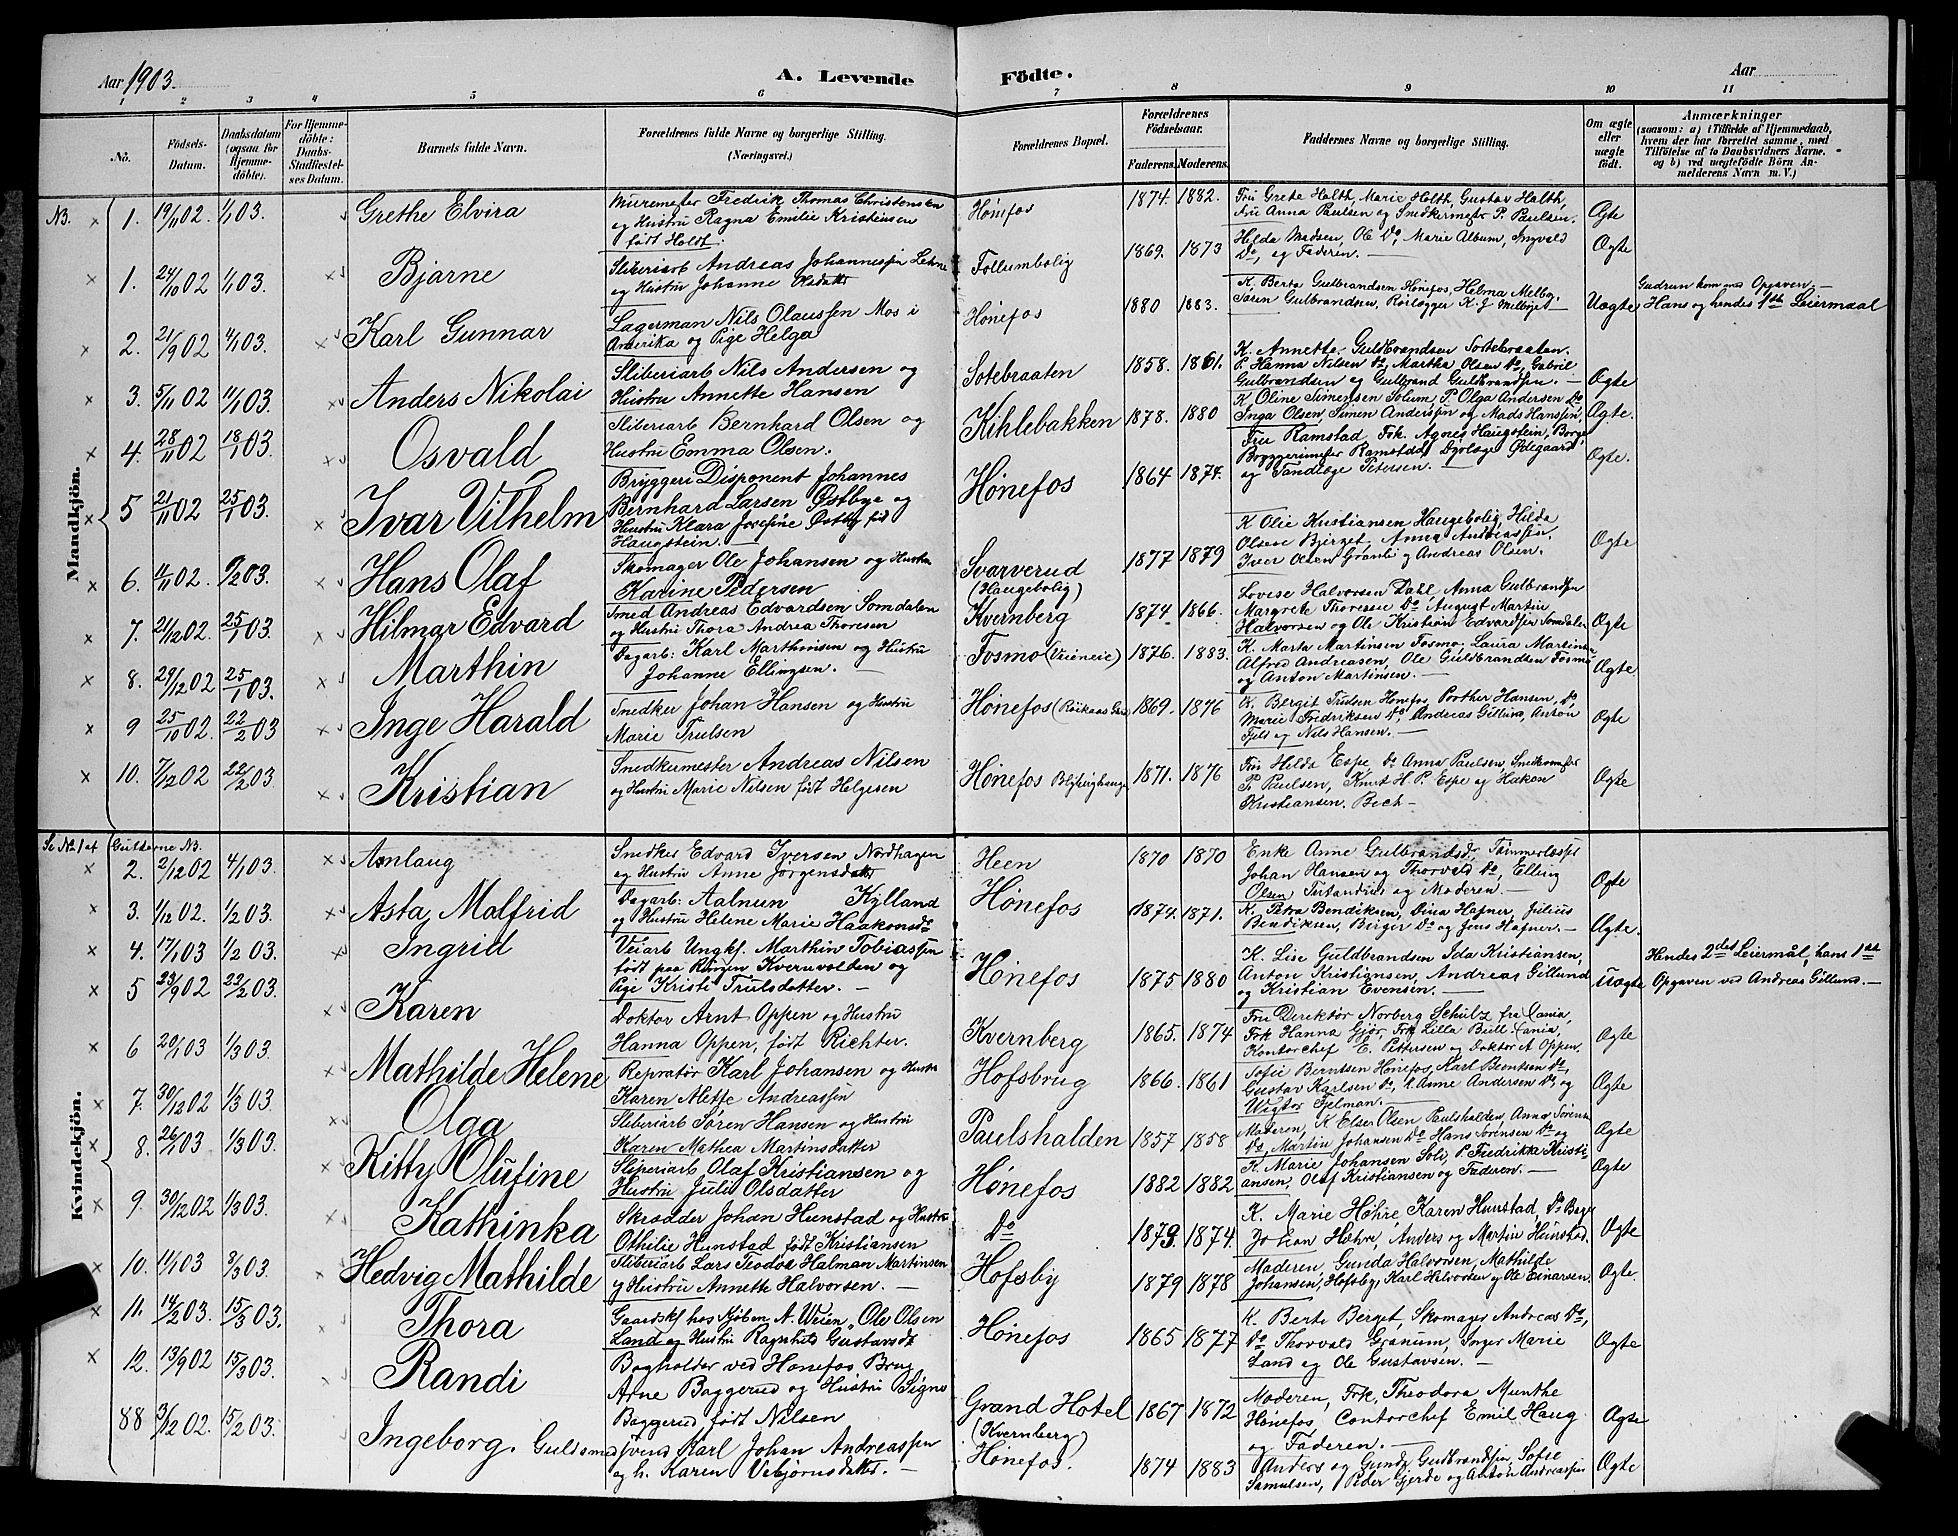 Aar 1903.
A. Levende Födte.
Aar
1 2 3 4 5 6 7 8 9 10 11
No.
Födsels-Datum.
Daabsdatum (ogsaa for Hjemme-döbte).
For Hjemme-döbte: Daabs-Stadfæstel-ses Datum.
Barnets fulde Navn.
Forældrenes fulde Navne og borgerlige Stilling. (Næringsvei.)
Forældrenes Bopæl.
Forældrenes Födselsaar.
Faderens. Moderens.
Faddernes Navne og borgerlige Stilling.
Om ægte eller uægte födt.
Anmærkninger
(saasom: a) i Tilfælde af Hjemmedaab, hvem der har forrettet samme, med Tilföielse af to Daabsvidners Navne, og b) ved uægtefödte Börn An-melderens Navn m. V.)
Mandkjön.
NB. × 1. 19/11 02. 1/1 03. Grethe Elvira
Muremester Fredrik Thomas Christensen
og Hustru Ragna Emilie Kristensen
født Holdt.
Hønefos 1874. 1882.
Fru Grete Holth, Marie Holth, Gustav Holth,
Fru Anna Paulsen og Snedkermester P. Paulsen.
Ægte
× 1. 24/10 02 1/1 03. Bjarne
Sliberiarb Andreas Johannessen
og Hustru Johanne
Follumbolig 1869. 1873
Hilda Madsen, Ole Do, Marie Album, Ingvald
Do, og Faderen. —
Ægte
× 2. 21/9 02 4/1 03. Karl Gunnar
Lagerman Nils Olaussen Mos i
Amerika og Pige Helga
Hønefos 1880 1883.
K. Berta Gulbrandsen Hønefos, Helma Melby,
Søren Gulbrandsen,
Uægte
Gudrun kom med Opgaven. —
Hans og hendes 1ste Leiermaal
× 3. 5/11 02 11/1 03. Anders Nikolai
Sliberiarb Nils Andersen og
Hustru Annette Hansen
Sotebraaten 1858. 1861.
K. Annette Guldbrandsen Sotebraaten.
P. Hanna Nilsen Do, Martha Olsen Do, Gabriel
Gulbrandsen og Gulbrand Guldbrandsen. —
Ægte
× 4. 28/11 02 18/1 03. Osvald
Sliberiarb Bernhard Olsen og
Hustru Emma Olsen.
Kihlebakken 1878. 1880
K Oline Simensen Solum, P Olga Andersen Do
Inga Olsen, Simen Andersen og Mads Hansen,
Ægte.
× 5 21/11 02 25/1 03. Ivar Vilhelm
Bryggeri Disponent Johannes
Bernhard Larsen Østbye og
Hustru Klara Josefine Østby fød
Haugstein. —
Hønefos 1864 1874.
Fru Ramstad, Frk. Agnes Haugstein,
Bryggerimester Ramstad, Dyrlæge Ødegaard
og Tandlæge Petersen. —
Ægte.
× 6. 11/11 02. 8/2 03. Hans Olaf
Skomager Ole Johansen og Hustru
Karine Pedersen
Svarverud
(Haugebolig) 1877 1879
K Olie Kristiansen Haugebolig, Hilda
Olsen Bjerget, Anna Andreassen,
Iver Olsen Grønli og Andreas Olsen.
Ægte
× 7. 21/12 02. 25/1 03. Hilmar Edvard
Smed Andreas Edvardsen Somdalen
og Hustru Thora Andrea Thoresen
Kvernberg 1874 1866.
Lovise Halvorsen Dahl, Anna Gulbrandsen
Margrete Thoresen Do August Martin
Halvorsen og Ole Kristian Edvardsen Somdalen
Ægte
× 8. 29/12 02 25/1 03. Marthin
Dagarb: Karl Marthinsen og Hustru
Johanne Ellingsen. —
Fosmo 1876. 1883.
K. Marta Martinsen Fosmo, Laura Martinsen
Alfred Andreasen, Ole Guldbrandsen Fosmo
og Anton Martinsen. —
Ægte
× 9 25/10 02. 22/2 03 Inge Harald
Snedker Johan Hansen og Hustru
Marie Trulsen
Hønefos 1869. 1876
K. Bergit Trulsen Hønefos, Porther Hansen, Do
Marie Fredriksen Do, Andreas Gillund, Anton
og Nils Hansen. —
Ægte
× 10. 7/12 02 22/2 03. Kristian
Snedkermester Andreas Nilsen
og Hustru Marie Nilsen født Helgesen
Hønefos 1871. 1876
Fru Hilda Espe, Do Anna Paulsen Snedkermester
P. Paulsen, Knut H. P. Espe og Hakon
Kristiansen. Bech —
Ægte
Kvindekjön.
Se No 1 af Gutterne NB.
× 2. 2/12 02 4/1 03. Aslaug
Snedker Edvard Iversen Nordhagen
og Hustru Anne Jørgensdatter
Heen 1870 1870
Enke Anne Gulbrandsd,
Johan Hansen og Thorvald Do, Elling
Olsen, og Moderen. —
Ægte
× 3. 1/12 02. 1/2 03. Asta Malfrid
Dagarb: Aalnun Kylland
og Hustru Helene Marie Haakonsd:
Hønefos 1874. 1871.
K. Petra Bendiksen, Dina Hafner, Julius
Bendiksen, Birger Do og Jens Hafner. —
Ægte.
× 4. 17/1 03 1/2 03. Ingrid
Veiarb Ungkf. Marthin Tobiassen
født paa Kvernvolden og
Pige Kristi Trulsdatter. —
Hønefos 1875 1880
K. Lise Guldbrandsen Ida Kristiansen,
Anton Kristiansen, Andreas Gillund
og Kristian Evensen. —
Uægte
Hendes 2det Leiermål, hans 1ste
Opgaven ved Andreas Gillund. —
× 5 23/9 02 22/2 03. Karen
Doktor Arnt Oppen og Hustru
Hanna Oppen, født Richter.
Kvernberg 1865. 1874
Fru Direktør Norberg Schulz fra Xania,
Frk Hanna Gjør, Frk Lilla Bull Xania,
Kontorchef E. Pettersen og Doktor A Oppen.
Ægte
× 6 20/1 03 1/3 03. Mathilde Helene
Repratør Karl Johansen og Hustru
Karen Alette Andreassen
Hofsbrug 1866. 1861
Sofie Berntsen Hønefos, Karl Berntsen Do,
Gustav Karlsen Do, P. Anne Andersen Do, og
Wigtor Gjelman. —
Ægte
× 7. 30/12 02 1/3 03. Olga
Sliberiarb Søren Hansen og Hustru
Karen Mathea Martinsdatter
Paulshalden 1857 1858
Moderen, K Else Olsen Paulshalden, Anna Sørensen
Do, Martin Johansen Do Hans Sørensen Do og
Ægte
× 8. 26/1 03 1/3 03. Kitty Olufine
Sliperiarb Olaf Kristiansen og
Hustru Juli Olsdatter
Hønefos 1882 1882
K. Marie Johansen Soli, P Fredrikke Kristi-
ansen, Olaf Kristiansen og Faderen. —
Ægte
× 9. 30/12 02 1/3 03. Kathinka
Skrædder Johan Hunstad og Hustru
Othilie Hunstad født Kristiansen
Do 1879. 1874.
K. Marie Høhre, Karen Hunstad, Do
Johan Høhre, Anders og Martin Hunstad.
Ægte
10. 11/1 03 8/3 03. Hedvig Mathilde
Sliberiarb Lars Teodor Halman Martinsen
og Hustru Annette Halvorsen. —
Hofsby 1879 1878
Moderen, Gunda Halvorsen, Mathilde
Johansen, Hofsby, Karl Halvorsen og Ole Einarsen.
Ægte.
× 11. 14/2 03. 15/3 03. Thora
Gaardskf hos Kjøbm A. Weien, Ole Olsen
Land og Hustru Ragnhild Gustavsdt
Hønefos 1865 1877
K. Berte Berget, Skomager Andreas Do,
Do Thorvald Granum, Inger Marie
Land og Ole Gustavsen. —
Ægte
× 12. 13/9 02 15/3 03. Randi
Bogholder ved Hønefos Brug
Arne Baggerud og Hustru Signe
Baggerud født Nilsen
Grand Hotel
(Kvernberg) 1867 1872
Moderen, Frk, Theodora Munthe
Hønefos, Contorchef Emil Haug
og Faderen. —
Ægte
88 3/12 02. 15/2 03. Ingeborg.
Guldsmedsvend Karl Johan Andreassen
og h. Karen Vebjørnsdatter. —
Hønefos. 1874 1883
Anders og Gunda Gudbrandsen, Sofie
Samulsen, Peder Gjerde og Anton Andreassen
Ægte